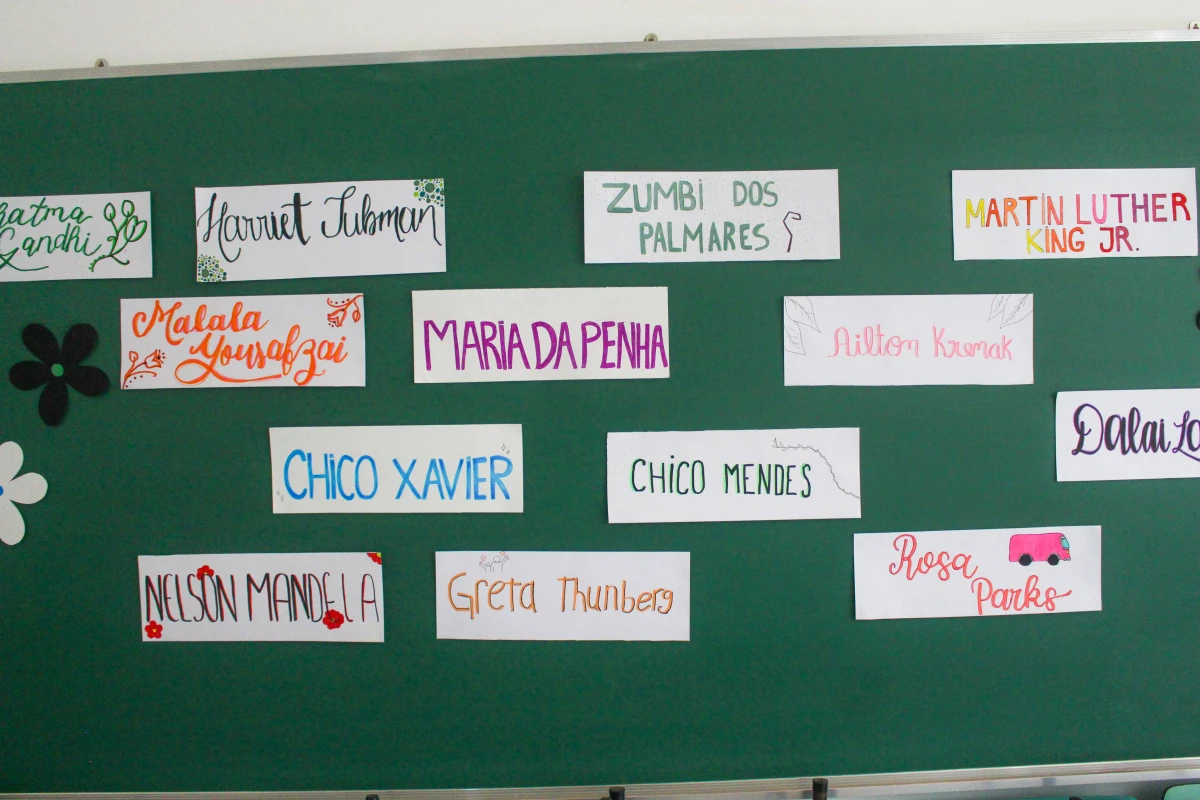 Gandhi
Harriet Tubman
ZUMBI DOS
PALMARES
MARTIN LUTHER
KING JR.
Malala
Yousafzai
MARIA DA PENHA
Ailton Krenak
Dalai
CHICO XAVIER
CHICO MENDES
NELSON MANDELA
Greta Thunberg
Rosa
Parks